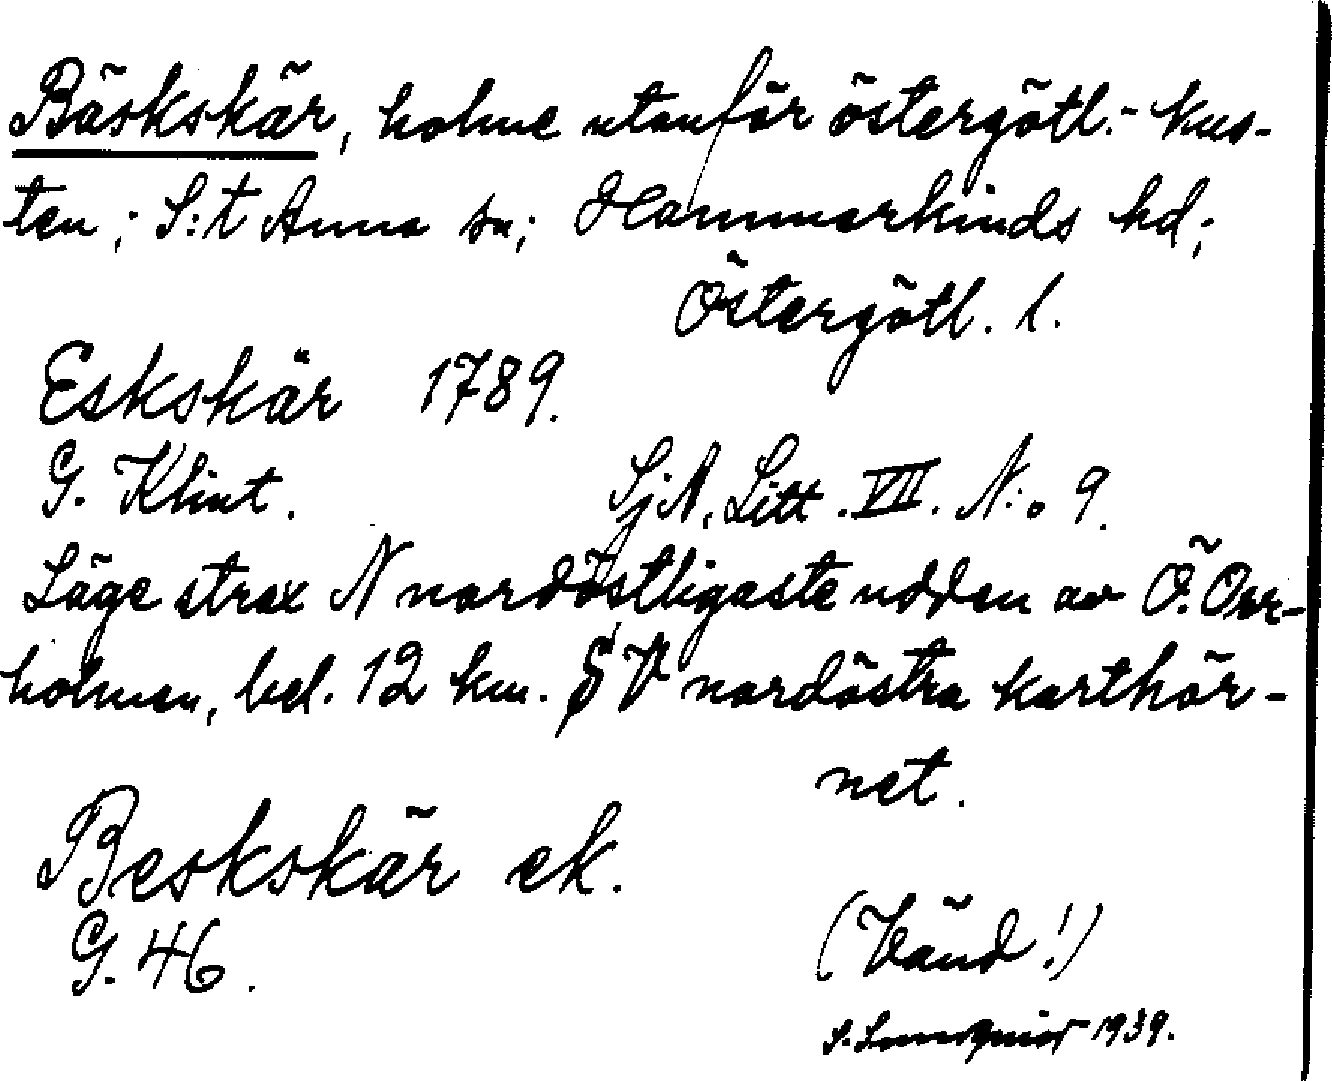 Bäskskär, holme utanför östergötl.- kus-
ten; S:t Anna sn; Hammarkinds hd;
Östergötl. l.
Eskskär 1789.
G. Klint. SjA, Litt. VII. N:o 9.
Läge strax N nordöstligaste udden av Ö. Orr-
holmen, bel. 12 km. SV nordöstra karthör-
net.
Beskskär ek.
G. 46.
(Vänd!)
S. 1939.